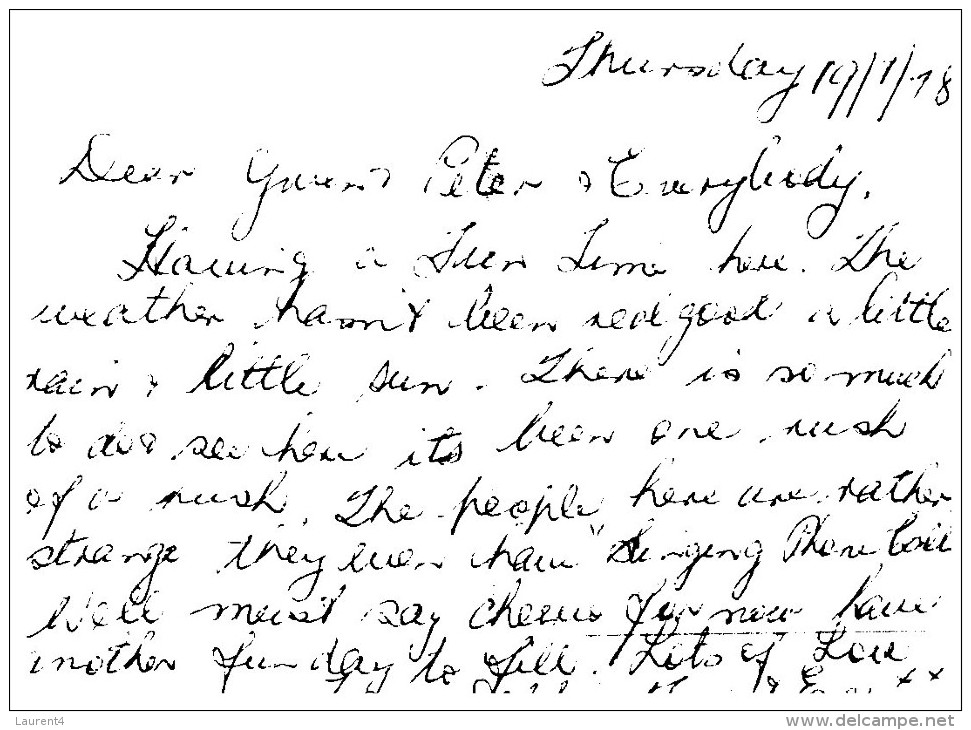 Thursday 19/1/78
Dear Gwen & Peter & Everybody,
Having a fun time here. The
weather hasn't been real good a little
rain & little sun. There is so much
to do & see here its been one rush
of a rush. The people here are rather
strange they even have "Singing Phone Call
Well must say cheers for now have
another fun day to fill. Lots of Love
xx
Laurent4
www.delcampe.net